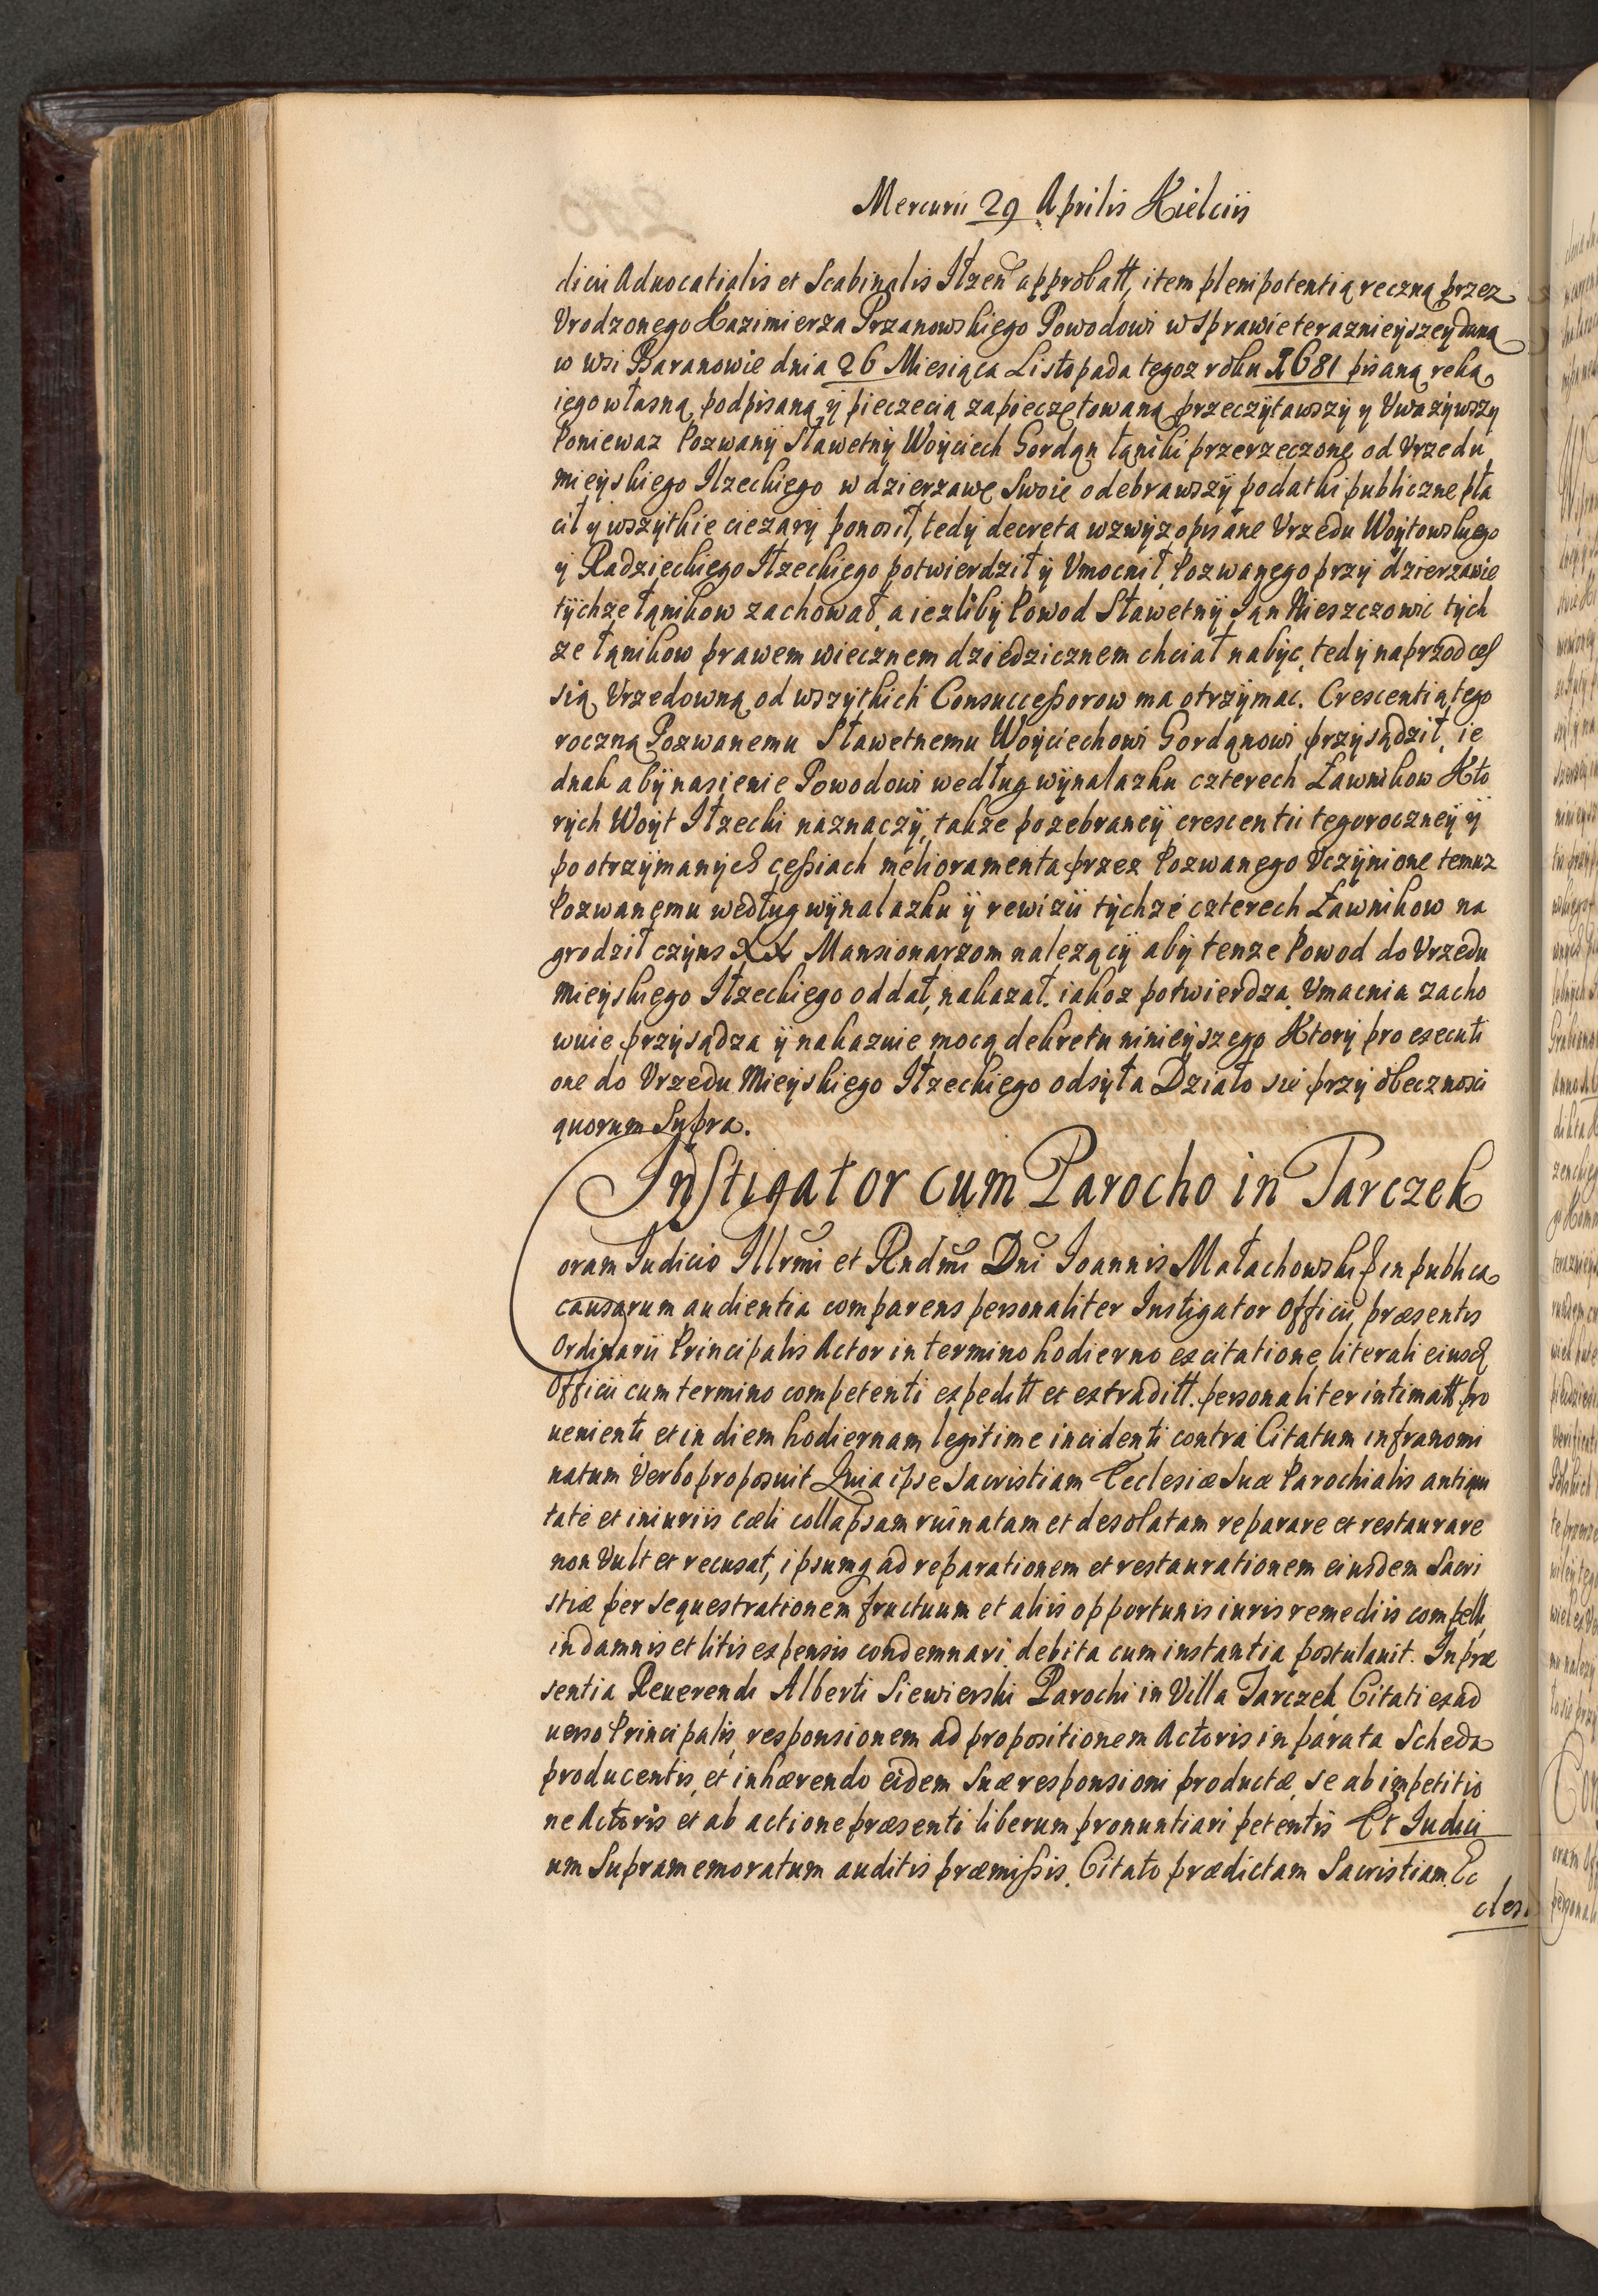 Mercurii 29 Aprilis Kielciis
dicii Aduocatialis et Scabinalis Iłzen approbatt, item plenipotentią reczną przez
Vrodzonego Kazimierza Przanowskiego Powodowi w sprawie teraznieÿszeÿ daną
w wsi Baranowie dnia 26 Miesiąca Listopada tegoz roku 1681 pisaną reką
iego własną podpisaną ÿ pieczecią zapieczętowaną przeczÿtawszÿ ÿ Vwazÿwszÿ
Poniewaz Pozwanÿ Sławetnÿ Woÿciech Gordan łąniki przerzeczone od Vrzedu
mieÿskiego Ilzeckiego w dzierzawę Swoie odebrawszÿ podatki publiczne pła
cił ÿ wszÿtkie ciezarÿ ponosił, tedÿ decreta wzwÿz opisane Vrzedu Woÿtowskiego
ÿ Radzieckiego Iłzeckiego potwierdził ÿ Vmocnił, Pozwanego przÿ dzierzawie
tÿchze łąnikow zachował, a iezlibÿ Powod Sławetnÿ Jan Mieszczowic tÿch
ze łąnikow prawem wiecznem dziedzicznem chciał nabÿc, tedÿ naprzod ces
sią Vrzedowną od wszÿtkich Consuccessorow ma otrzÿmac. Crescentią tego
roczną Pozwanemu Sławetnemu Woÿciechowi Gordąnowi przÿsądził, ie
dnak abÿ nasienie Powodowi według wÿnalazku czterech Ławnikow Kto
rÿch Woÿt Iłzecki naznaczÿ, takze po zebraneÿ crescentii tegoroczneÿ ÿ
po otrzÿmanÿch cessiach meliioramenta przez Pozwanego Vczÿnione temuz
Pozwanemu według wÿnalazku ÿ rewizii tÿchze czterech Ławnikow na
grodził czÿns XX Mansionarzom nalezącÿ abÿ tenze Powod do Vrzedu
Mieÿskiego Iłzeckiego oddał, nakazał. iakoz potwierdza Vmacnia zacho
wuie przÿsądza ÿ nakazuie mocą dekretu ninieÿszego Ktorÿ pro executi
one do Vrzedu Mieÿskiego Iłzeckiego odsÿła Działo sie przÿ obecznosci
quorum Supra.
Instigator cum Parocho in Tarczek
Coram Iudicio Illrmi et Rndmi Dni Ioannis Małachowski in publica
causarum audientia comparens personaliter Instigator Officii præsentis
Ordinarii Principalis Actor in termino hodierno ex citatione literali eiusd
Officii cum termino competenti expeditt et extraditt. personaliter intimatt pro
uenienti et in diem hodiernam legitime incidenti contra Citatum infranomi
natum Verbo proposuit Quia ipse Sacristiam Ecclesiæ Suæ Parochialis antiqui
tate et iniuriis cæli collapsam ruinatam et desolatam reparare et restaurare
non Vult et recusat, ipsumq ad reparationem et restaurationem eiusdem Sacri
stiæ per sequestrationem fructuum et aliis opportunis iuris remediis compelli
in damnis et litis expensis condemnari debita cum instantia postulauit. In præ
sentia Reuerendi Alberti Siewierski Parochi in Villa Tarczek Citati ex ad
uerso Principalis responsionem ad propositionem Actoris in parata Scheda
producentis et inhærendo eidem Suæ responsioni productæ se ab impetitio
ne Actoris et ab actione præsenti liberum pronuntiari petentis Et Iudici
um Supramemoratum auditis præmissis Citato prædictam Sacristiam Ec
clesi